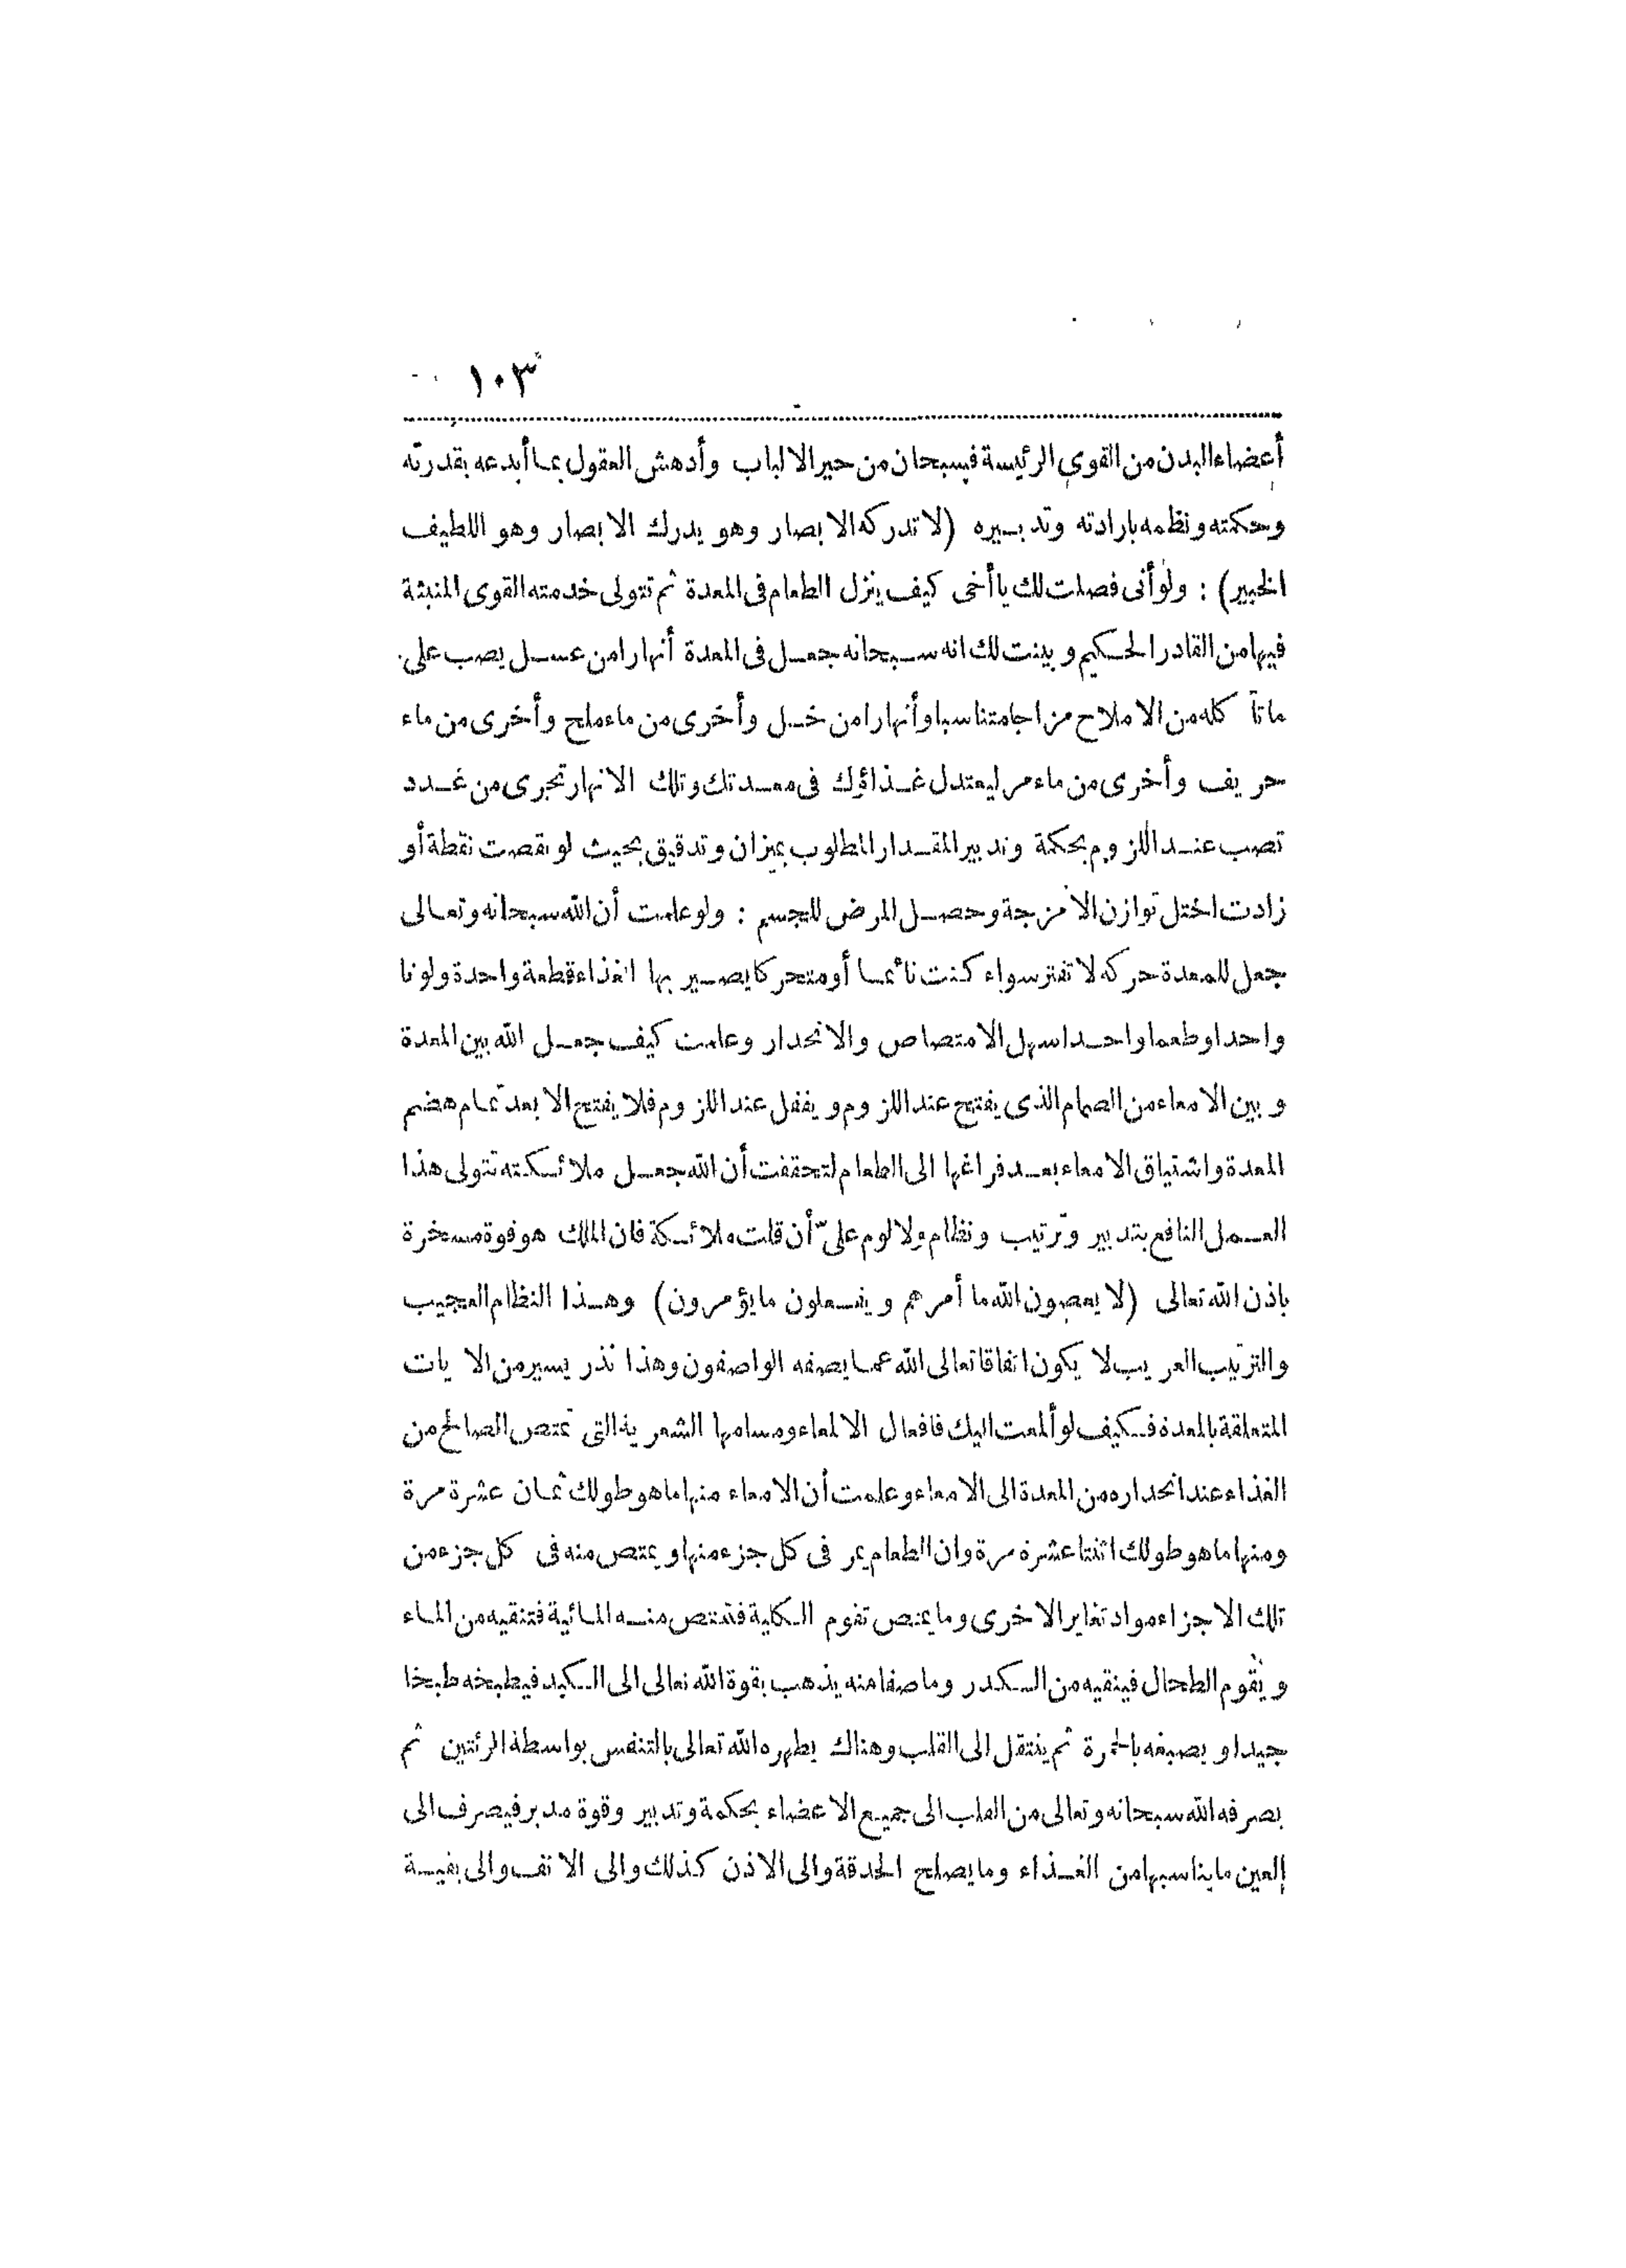 ١٠٣
أعضاء البدن من القوى الرئيسة فسبحان من حير الالباب وأدهش العقول بما أبدعه بقدرته
وحكمته ونظمه بارادته وتدبيره (لا تدركه الابصار وهو يدرك الابصار وهو اللطيف
الخبير) : ولو أنى فصلت لك يا أخى كيف ينزل الطعام فى المعدة ثم تتولى خدمته القوى المنبثة
فيها من القادر الحكيم وبينت لك انه سبحانه جعل فى المعدة أنهارا من عسل يصب على
ما تأكله من الاملاح مزاجا متناسبا وأنهارا من خل وأخرى من ماء ملح وأخرى من ماء
حريف وأخرى من ماء مر ليعتدل غذاؤك فى معدتك وتلك الانهار تجرى من غدد
تصب عند اللزوم بحكمة وتدبير المقدار المطلوب بميزان وتدقيق بحيث لو نقصت نقطة أو
زادت اختل توازن الامزجة وحصل المرض للجسم : ولو علمت أن الله سبحانه وتعالى
جعل للمعدة حركه لا تفتر سواء كنت نائما أو متحركا يصير بها الغذاء قطعة واحدة ولونا
واحدا وطعما واحدا سهل الامتصاص والانحدار وعلمت كيف جعل الله بين المعدة
وبين الامعاء من الصمام الذى يفتح عند اللزوم ويقفل عند اللزوم فلا يفتح الا بعد تمام هضم
المعدة واشتياق الامعاء بعد فراغها الى الطعام لتحققت أن الله جعل ملائكته تتولى هذا
العمل النافع بتدبير وترتيب ونظام ولا لوم علىّ أن قلت ملائكة فان الملك هو قوة مسخرة
باذن الله تعالى (لا يعصون الله ما أمرهم ويفعلون ما يؤمرون) وهذا النظام العجيب
والترتيب الغريب لا يكون اتفاقا تعالى الله عما يصفه الواصفون وهذا نذر يسير من الآيات
المتعلقة بالمعدة فكيف لو ألمعت اليك فافعال الالمعاء ومسامها الشعرية التى تمتص الصالح من
الغذاء عند انحداره من المعدة الى الامعاء وعلمت أن الامعاء منها ما هو طولك ثمان عشرة مرة
ومنها ما هو طولك اثنتا عشرة مرة وان الطعام يمر فى كل جزء منها ويمتص منه فى كل جزء من
تلك الاجزاء مواد تغاير الاخرى وما يمتص تقوم الكلية فتمتص منه المائية فتنقيه من الماء
ويقوم الطحال فينقيه من الكدر وما صفا منه يذهب بقوة الله تعالى الى الكبد فيطبخه طبخا
جيدا ويصبغه بالحمرة ثم ينتقل الى القلب وهناك يطهره الله تعالى بالتنفس بواسطة الرئتين ثم
يصرفه الله سبحانه وتعالى من القلب الى جميع الاعضاء بحكمة وتدبير وقوة مدبر فيصرف الى
العين ما يناسبها من الغذاء وما يصلح الحدقة والى الاذن كذلك والى الانف والى بقية